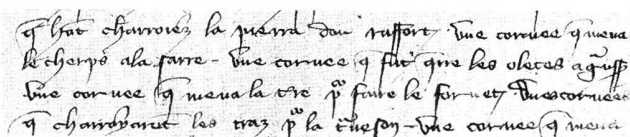 q̃ hot charroiez la pierra dou raffort . vne coruee q̃ mena
le cherps a la farre - vne coruee q̃ fut q̃re les oletes
vne coruee q̃ mena la t̃re p̱ faire le fornet . vnes coruees
q̃ charroyarẽt les traz p̱ la - vne coruee q̃ mena